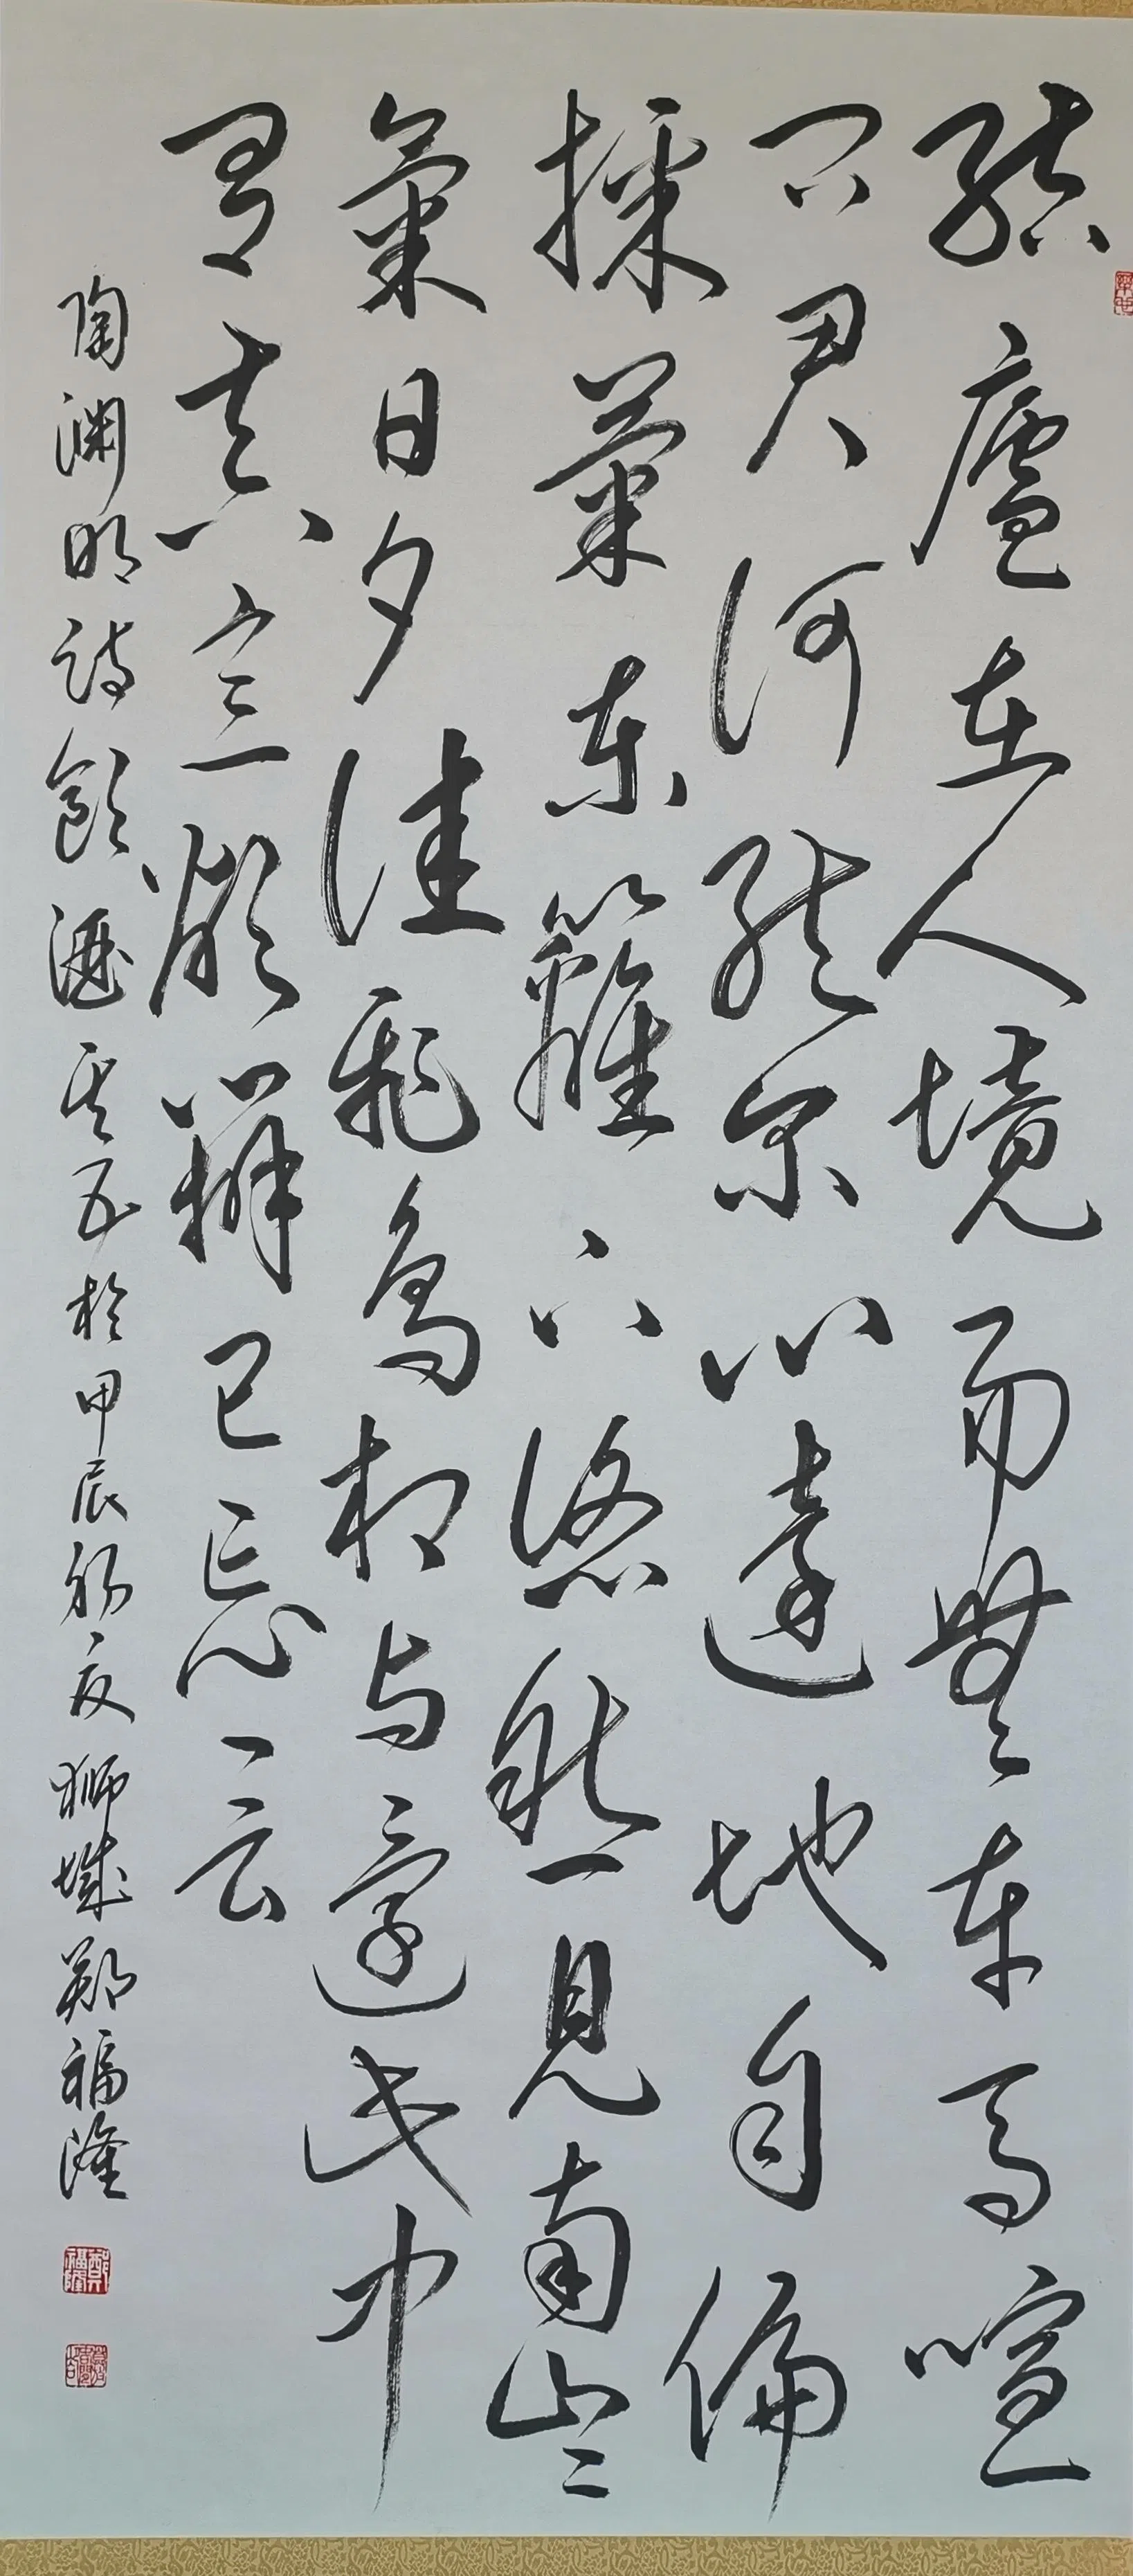 結廬在人境而無車馬喧
問君何能尔心遠地自偏
採菊東籬下悠然見南山〻
氣日夕佳飛鳥相与還此中
有真意欲辯已忘言
陶淵明詩飲酒其五於甲辰初夏獅城鄭福隆
鄭福隆